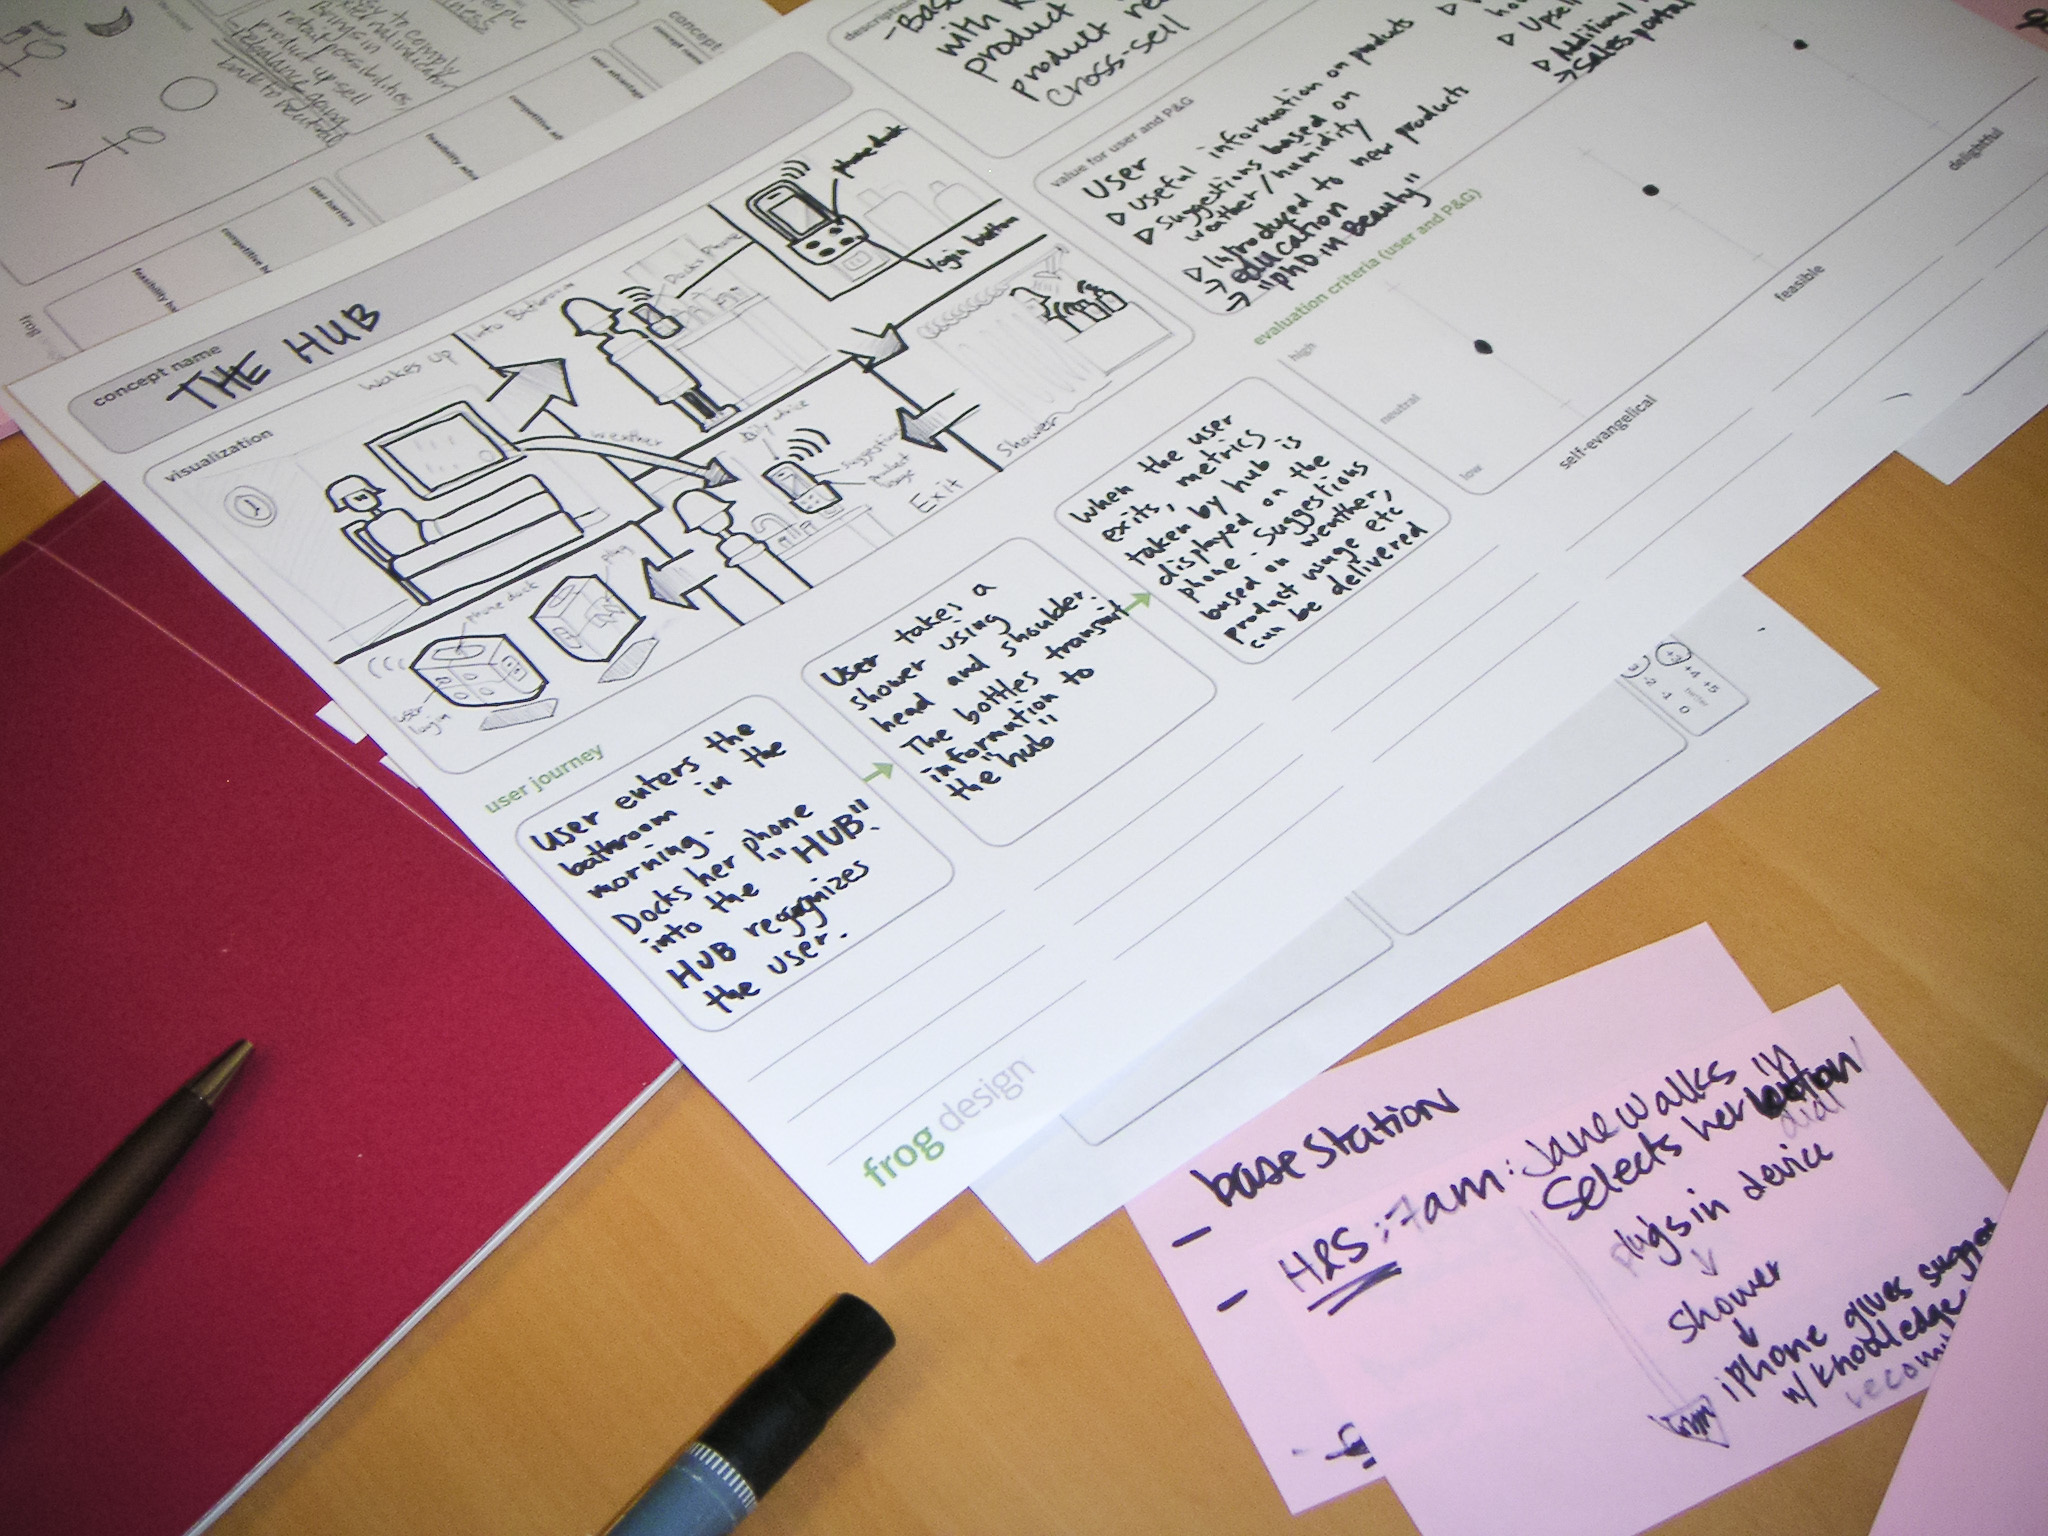 concept name
THE HUB
visualization
Wakes up
Into Bathroom
Docks Phone
phone dock
login button
weather
Daily advice
Suggestions
Product usage
Exit
Shower
phone dock
plug
user login
description
with
product
product
cross-sell
value for user and P&G
User
Useful information on products
Suggestions based on
weather/humidity
Introduced to new products
→ education
→ "phD in Beauty"
Upsell
Additional
→ Sales portal
evaluation criteria (user and P&G)
high
neutral
low
self-evangelical
feasible
delightful
user journey
User enters the
bathroom in the
morning.
Docks her phone
into the "HUB".
HUB recognizes
the user.
User takes a
shower using
head and shoulder.
The bottles transmit
information to
the "hub"
When the user
exits, metrics
taken by hub is
displayed on the
phone. Suggestions
based on weather,
product usage etc
can be delivered
frog design
- base station
- H&S: 7am: Jane walks in
Selects her button
dial
plugs in device
↓
shower
↓
iPhone gives
w/ knowledge
easy to comply
Brings in
retail possibilities
product up-sell
concept
user advantage
user barriers
frog
+4
+5
-2
-1
0